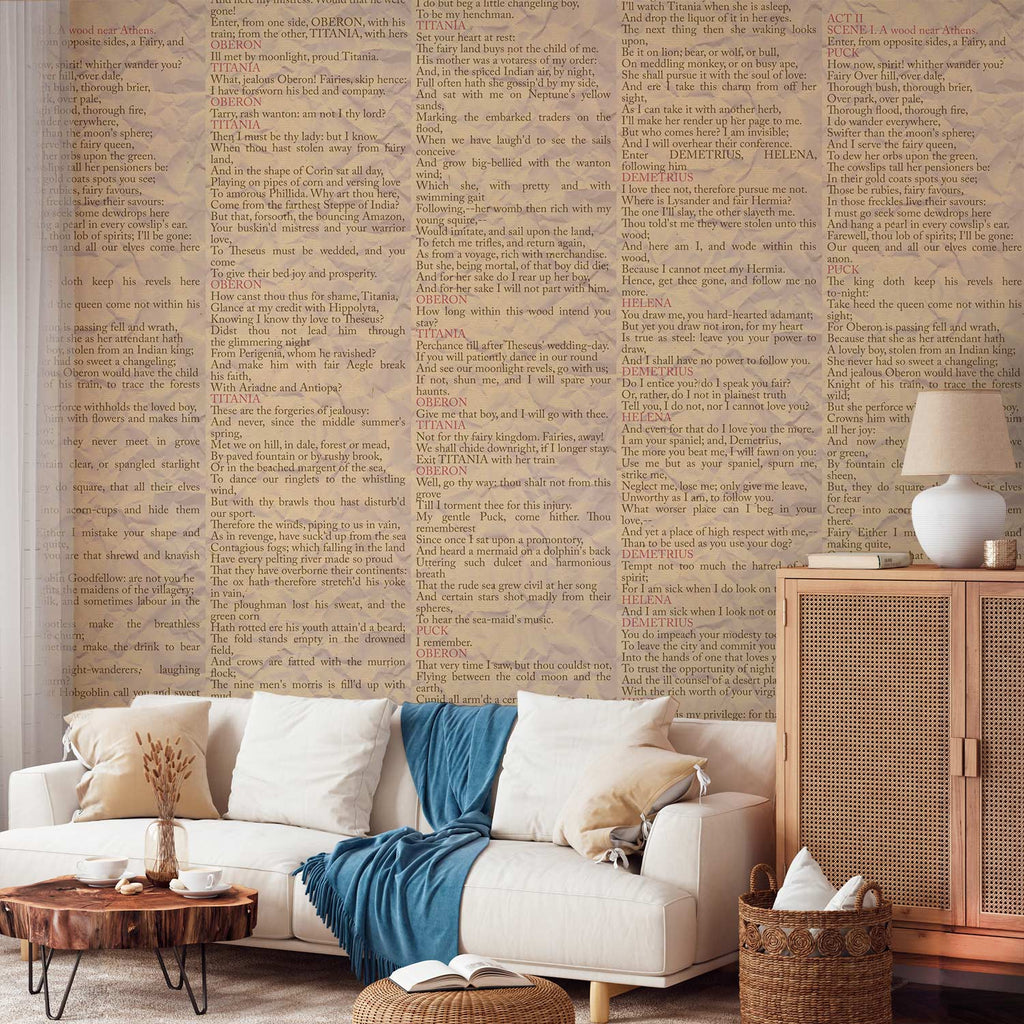 I. A wood near Athens.
opposite sides, a Fairy, and
spirit! whither wander you?
hill, over dale,
bush, thorough brier,
park, over pale,
flood, thorough fire,
wander everywhere,
than the moon's sphere;
serve the fairy queen,
her orbs upon the green.
cowslips tall her pensioners be:
gold coats spots you see;
be rubies, fairy favours,
freckles live their savours:
seek some dewdrops here
a pearl in every cowslip's ear.
thou lob of spirits; I'll be gone:
and all our elves come here
doth keep his revels here
the queen come not within his
is passing fell and wrath,
that she as her attendant hath
boy, stolen from an Indian king;
had so sweet a changeling;
Oberon would have the child
of his train, to trace the forests
perforce withholds the loved boy,
him with flowers and makes him
they never meet in grove
clear, or spangled starlight
do square, that all their elves
into acorn-cups and hide them
I mistake your shape and
quite,
are that shrewd and knavish
Goodfellow: are not you he
the maidens of the villagery;
and sometimes labour in the
make the breathless
churn;
make the drink to bear
night-wanderers, laughing
harm?
Hobgoblin call you and sweet
And here my mistress. Would that he were
gone!
Enter, from one side, OBERON, with his
train; from the other, TITANIA, with hers
OBERON
Ill met by moonlight, proud Titania.
TITANIA
What, jealous Oberon! Fairies, skip hence:
I have forsworn his bed and company.
OBERON
Tarry, rash wanton: am not I thy lord?
TITANIA
Then I must be thy lady: but I know
When thou hast stolen away from fairy
land,
And in the shape of Corin sat all day,
Playing on pipes of corn and versing love
To amorous Phillida. Why art thou here,
Come from the farthest Steppe of India?
But that, forsooth, the bouncing Amazon,
Your buskin'd mistress and your warrior
love,
To Theseus must be wedded, and you
come
To give their bed joy and prosperity.
OBERON
How canst thou thus for shame, Titania,
Glance at my credit with Hippolyta,
Knowing I know thy love to Theseus?
Didst thou not lead him through
the glimmering night
From Perigenia, whom he ravished?
And make him with fair Aegle break
his faith,
With Ariadne and Antiopa?
TITANIA
These are the forgeries of jealousy:
And never, since the middle summer's
spring,
Met we on hill, in dale, forest or mead,
By paved fountain or by rushy brook,
Or in the beached margent of the sea,
To dance our ringlets to the whistling
wind,
But with thy brawls thou hast disturb'd
our sport.
Therefore the winds, piping to us in vain,
As in revenge, have suck'd up from the sea
Contagious fogs; which falling in the land
Have every pelting river made so proud
That they have overborne their continents:
The ox hath therefore stretch'd his yoke
in vain,
The ploughman lost his sweat, and the
green corn
Hath rotted ere his youth attain'd a beard;
The fold stands empty in the drowned
field,
And crows are fatted with the murrion
flock;
The nine men's morris is fill'd up with
mud,
I do but beg a little changeling boy,
To be my henchman.
TITANIA
Set your heart at rest:
The fairy land buys not the child of me.
His mother was a votaress of my order:
And, in the spiced Indian air, by night,
Full often hath she gossip'd by my side,
And sat with me on Neptune's yellow
sands,
Marking the embarked traders on the
flood,
When we have laugh'd to see the sails
conceive
And grow big-bellied with the wanton
wind;
Which she, with pretty and with
swimming gait
Following,--her womb then rich with my
young squire,--
Would imitate, and sail upon the land,
To fetch me trifles, and return again,
As from a voyage, rich with merchandise.
But she, being mortal, of that boy did die;
And for her sake do I rear up her boy,
And for her sake I will not part with him.
OBERON
How long within this wood intend you
stay?
TITANIA
Perchance till after Theseus' wedding-day.
If you will patiently dance in our round
And see our moonlight revels, go with us;
If not, shun me, and I will spare your
haunts.
OBERON
Give me that boy, and I will go with thee.
TITANIA
Not for thy fairy kingdom. Fairies, away!
We shall chide downright, if I longer stay.
Exit TITANIA with her train
OBERON
Well, go thy way: thou shalt not from this
grove
Till I torment thee for this injury.
My gentle Puck, come hither. Thou
rememberest
Since once I sat upon a promontory,
And heard a mermaid on a dolphin's back
Uttering such dulcet and harmonious
breath
That the rude sea grew civil at her song
And certain stars shot madly from their
spheres,
To hear the sea-maid's music.
PUCK
I remember.
OBERON
That very time I saw, but thou couldst not,
Flying between the cold moon and the
earth,
Cupid all arm'd: a cer
I'll watch Titania when she is asleep,
And drop the liquor of it in her eyes.
The next thing then she waking looks
upon,
Be it on lion, bear, or wolf, or bull,
On meddling monkey, or on busy ape,
She shall pursue it with the soul of love:
And ere I take this charm from off her
sight,
As I can take it with another herb,
I'll make her render up her page to me.
But who comes here? I am invisible;
And I will overhear their conference.
Enter DEMETRIUS, HELENA,
following him
DEMETRIUS
I love thee not, therefore pursue me not.
Where is Lysander and fair Hermia?
The one I'll slay, the other slayeth me.
Thou told'st me they were stolen unto this
wood;
And here am I, and wode within this
wood,
Because I cannot meet my Hermia.
Hence, get thee gone, and follow me no
more.
HELENA
You draw me, you hard-hearted adamant;
But yet you draw not iron, for my heart
Is true as steel: leave you your power to
draw,
And I shall have no power to follow you.
DEMETRIUS
Do I entice you? do I speak you fair?
Or, rather, do I not in plainest truth
Tell you, I do not, nor I cannot love you?
HELENA
And even for that do I love you the more.
I am your spaniel; and, Demetrius,
The more you beat me, I will fawn on you:
Use me but as your spaniel, spurn me,
strike me,
Neglect me, lose me; only give me leave,
Unworthy as I am, to follow you.
What worser place can I beg in your
love,--
And yet a place of high respect with me,--
Than to be used as you use your dog?
DEMETRIUS
Tempt not too much the hatred
spirit;
For I am sick when I do look on t
HELENA
And I am sick when I look not on
DEMETRIUS
You do impeach your modesty too
To leave the city and commit you
Into the hands of one that loves y
To trust the opportunity of night
And the ill counsel of a desert pla
With the rich worth of your virgi
is my privilege: for tha
ACT II
SCENE I. A wood near Athens.
Enter, from opposite sides, a Fairy, and
PUCK
How now, spirit! whither wander you?
Fairy Over hill, over dale,
Thorough bush, thorough brier,
Over park, over pale,
Thorough flood, thorough fire,
I do wander everywhere,
Swifter than the moon's sphere;
And I serve the fairy queen,
To dew her orbs upon the green.
The cowslips tall her pensioners be:
In their gold coats spots you see;
Those be rubies, fairy favours,
In those freckles live their savours:
I must go seek some dewdrops here
And hang a pearl in every cowslip's ear.
Farewell, thou lob of spirits; I'll be gone:
Our queen and all our elves come here
anon.
PUCK
The king doth keep his revels here
to-night:
Take heed the queen come not within his
sight;
For Oberon is passing fell and wrath,
Because that she as her attendant hath
A lovely boy, stolen from an Indian king;
She never had so sweet a changeling;
And jealous Oberon would have the child
Knight of his train, to trace the forests
wild;
But she perforce w
Crowns him with
all her joy:
And now they
or green,
By fountain cle
sheen,
But, they do square, elves
for fear
Creep into acor them
there.
Fairy Either I
making quite,